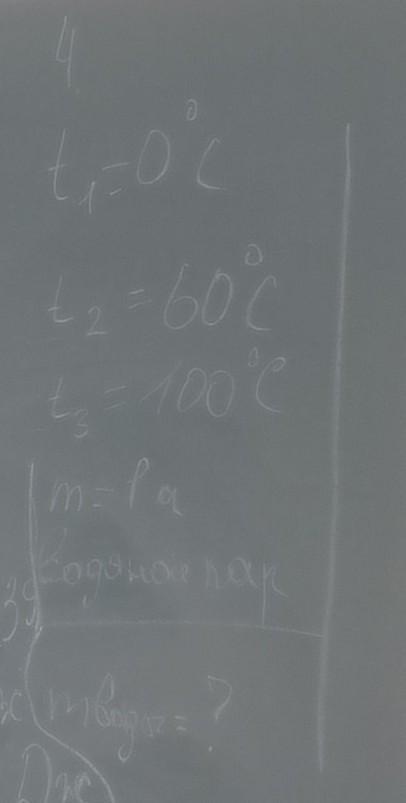 4
t₁=0°C
t₂=60°C
t₃=100°C
m=
Водяной пар
m воды=?
Дж